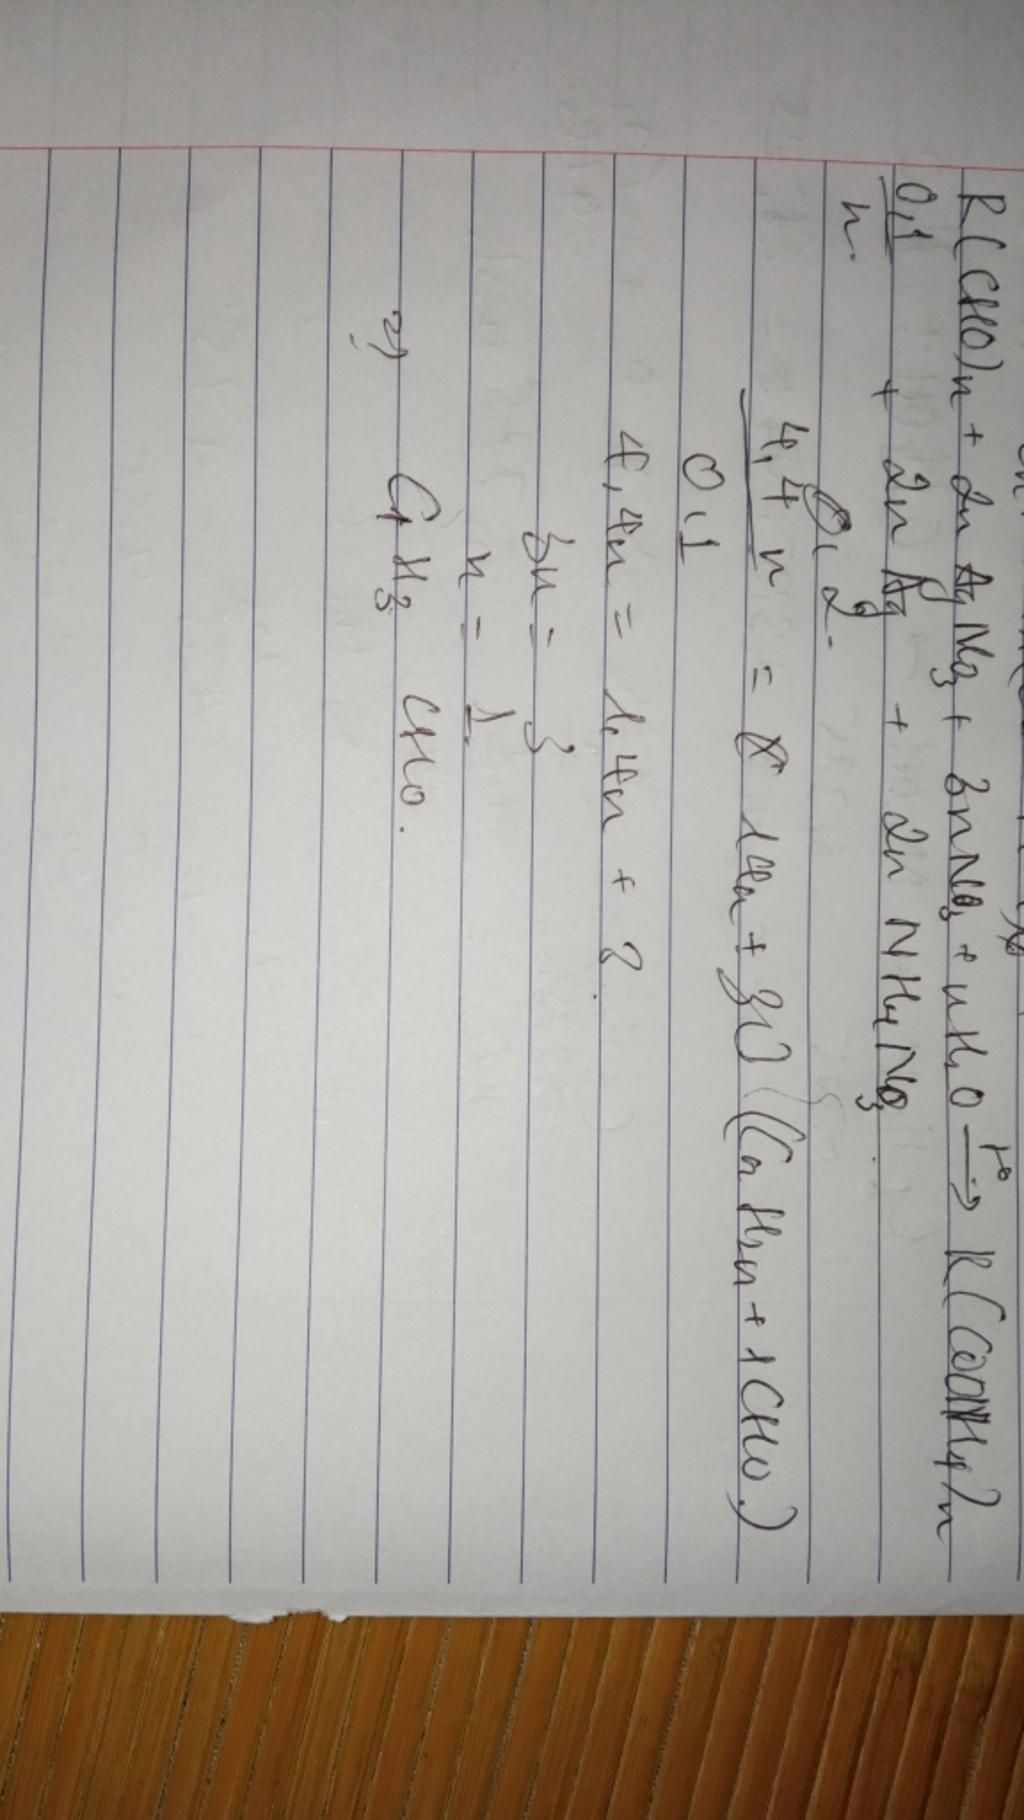 R(CHO)n + 2n AgNO3 + 3nNO3 + nH2O t° → R(COONH4)n
0,1/n + 2n Ag + 2n NH4NO3
0,2.
4,4 n / 0,1 = 14n + 30 (CnH2n+1CHO)
4,4n = 1,4n + 3
3n = 3
n = 1
=) CH3 CHO.